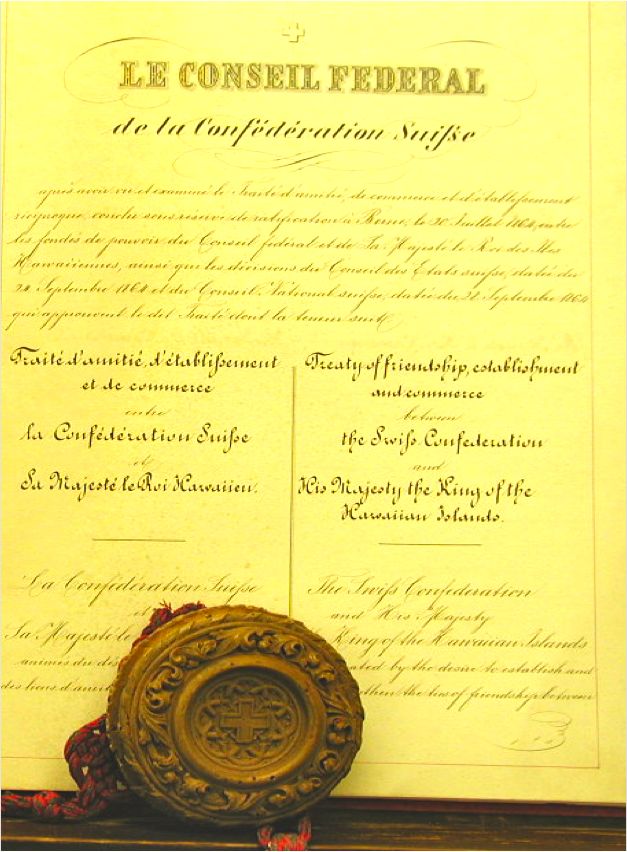 LE CONSEIL FEDERAL
de la Confédération Suiſse
après avoir vu et examiné le Traité d'amitié, de commerce et d'établiſsement
réciproque, conclu sous réserve de ratification à Berne, le 20 Juillet 1864, entre
les fondés de pouvoir du Conseil fédéral et de Sa Majesté le Roi des Iles
Hawaiiennes, ainsi que les décisions du Conseil des Etats suiſse, datée du
24 Septembre 1864 et du Conseil National suiſse, datée du 28 Septembre 1864
qui approuvent le dit Traité dont la teneur suit
Traité d'amitié, d'établiſsement
et de commerce
entre
la Confédération Suiſse
et
Sa Majesté le Roi Hawaiien.
Treaty of friendship, establishment
and commerce
between
the Swiſs Confederation
and
His Majesty the King of the
Hawaiian Islands.
La Confédération Suiſse
et
Sa Majesté le
animés du dés
des liens d'amit
The Swiſs Confederation
and His Majesty
King of the Hawaiian Islands
ated by the desire to establish and
then the ties of friendship between